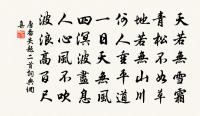 天若無雪霜
青松不如草
地若無山川
何人重平道
一日天無風
四溟波盡息
人心風不吹
波浪高百尺
唐備失題二首詞典網
集